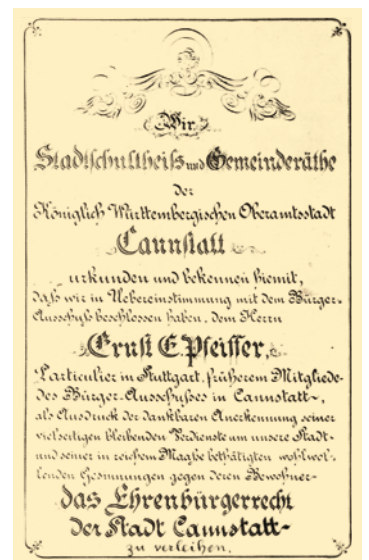 Wir
Stadtschultheiß und Gemeinderäthe
der
Königlich Württembergischen Oberamtsstadt
Cannstatt
urkunden und bekennen hiemit,
daß wir in Uebereinstimmung mit dem Bürger-
Ausschuß beschlossen haben, dem Herrn
Ernst E. Pfeiffer,
Particulier in Stuttgart, früherem Mitgliede
des Bürger-Ausschußes in Cannstatt,
als Ausdruck der dankbaren Anerkennung seiner
vielseitigen bleibenden Verdienste um unsere Stadt
und seiner in reichem Maaße bethätigten wohlwol-
lenden Gesinnungen gegen deren Bewohner
das Ehrenbürgerrecht
der Stadt Cannstatt
zu verleihen.